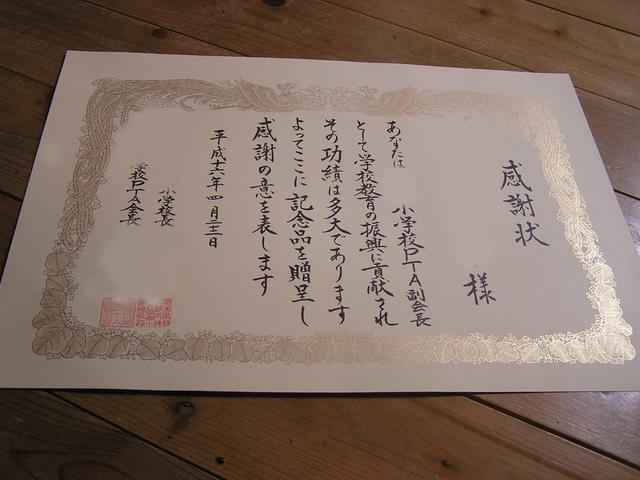 感謝状
様
あなたは 小学校PTA副会長
として学校教育の振興に貢献され
その功績は多大であります
よってここに記念品を贈呈し
感謝の意を表します
平成十六年四月二十三日
小学校長
学校PTA会長